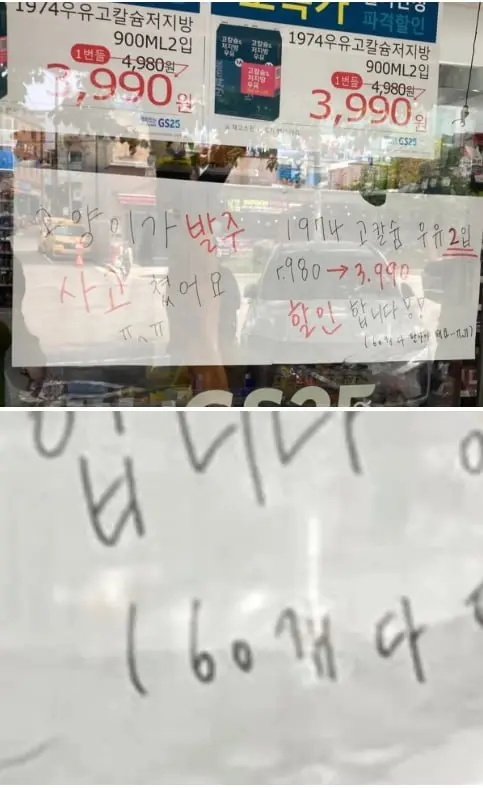 1974우유고칼슘저지방
900ML2입
1번들 4,980원
3,990원
GS25
파격할인
1974우유고칼슘저지방
900ML2입
1번들 4,980원
3,990원
GS25
고칼슘&
저지방
우유
고양이가 발주
사고 쳤어요
ㅠㅠ
1974 고칼슘 우유 2입
5.980 → 3.990
할인 합니다용!
(60개 다
GS25
입니다
(60개 다